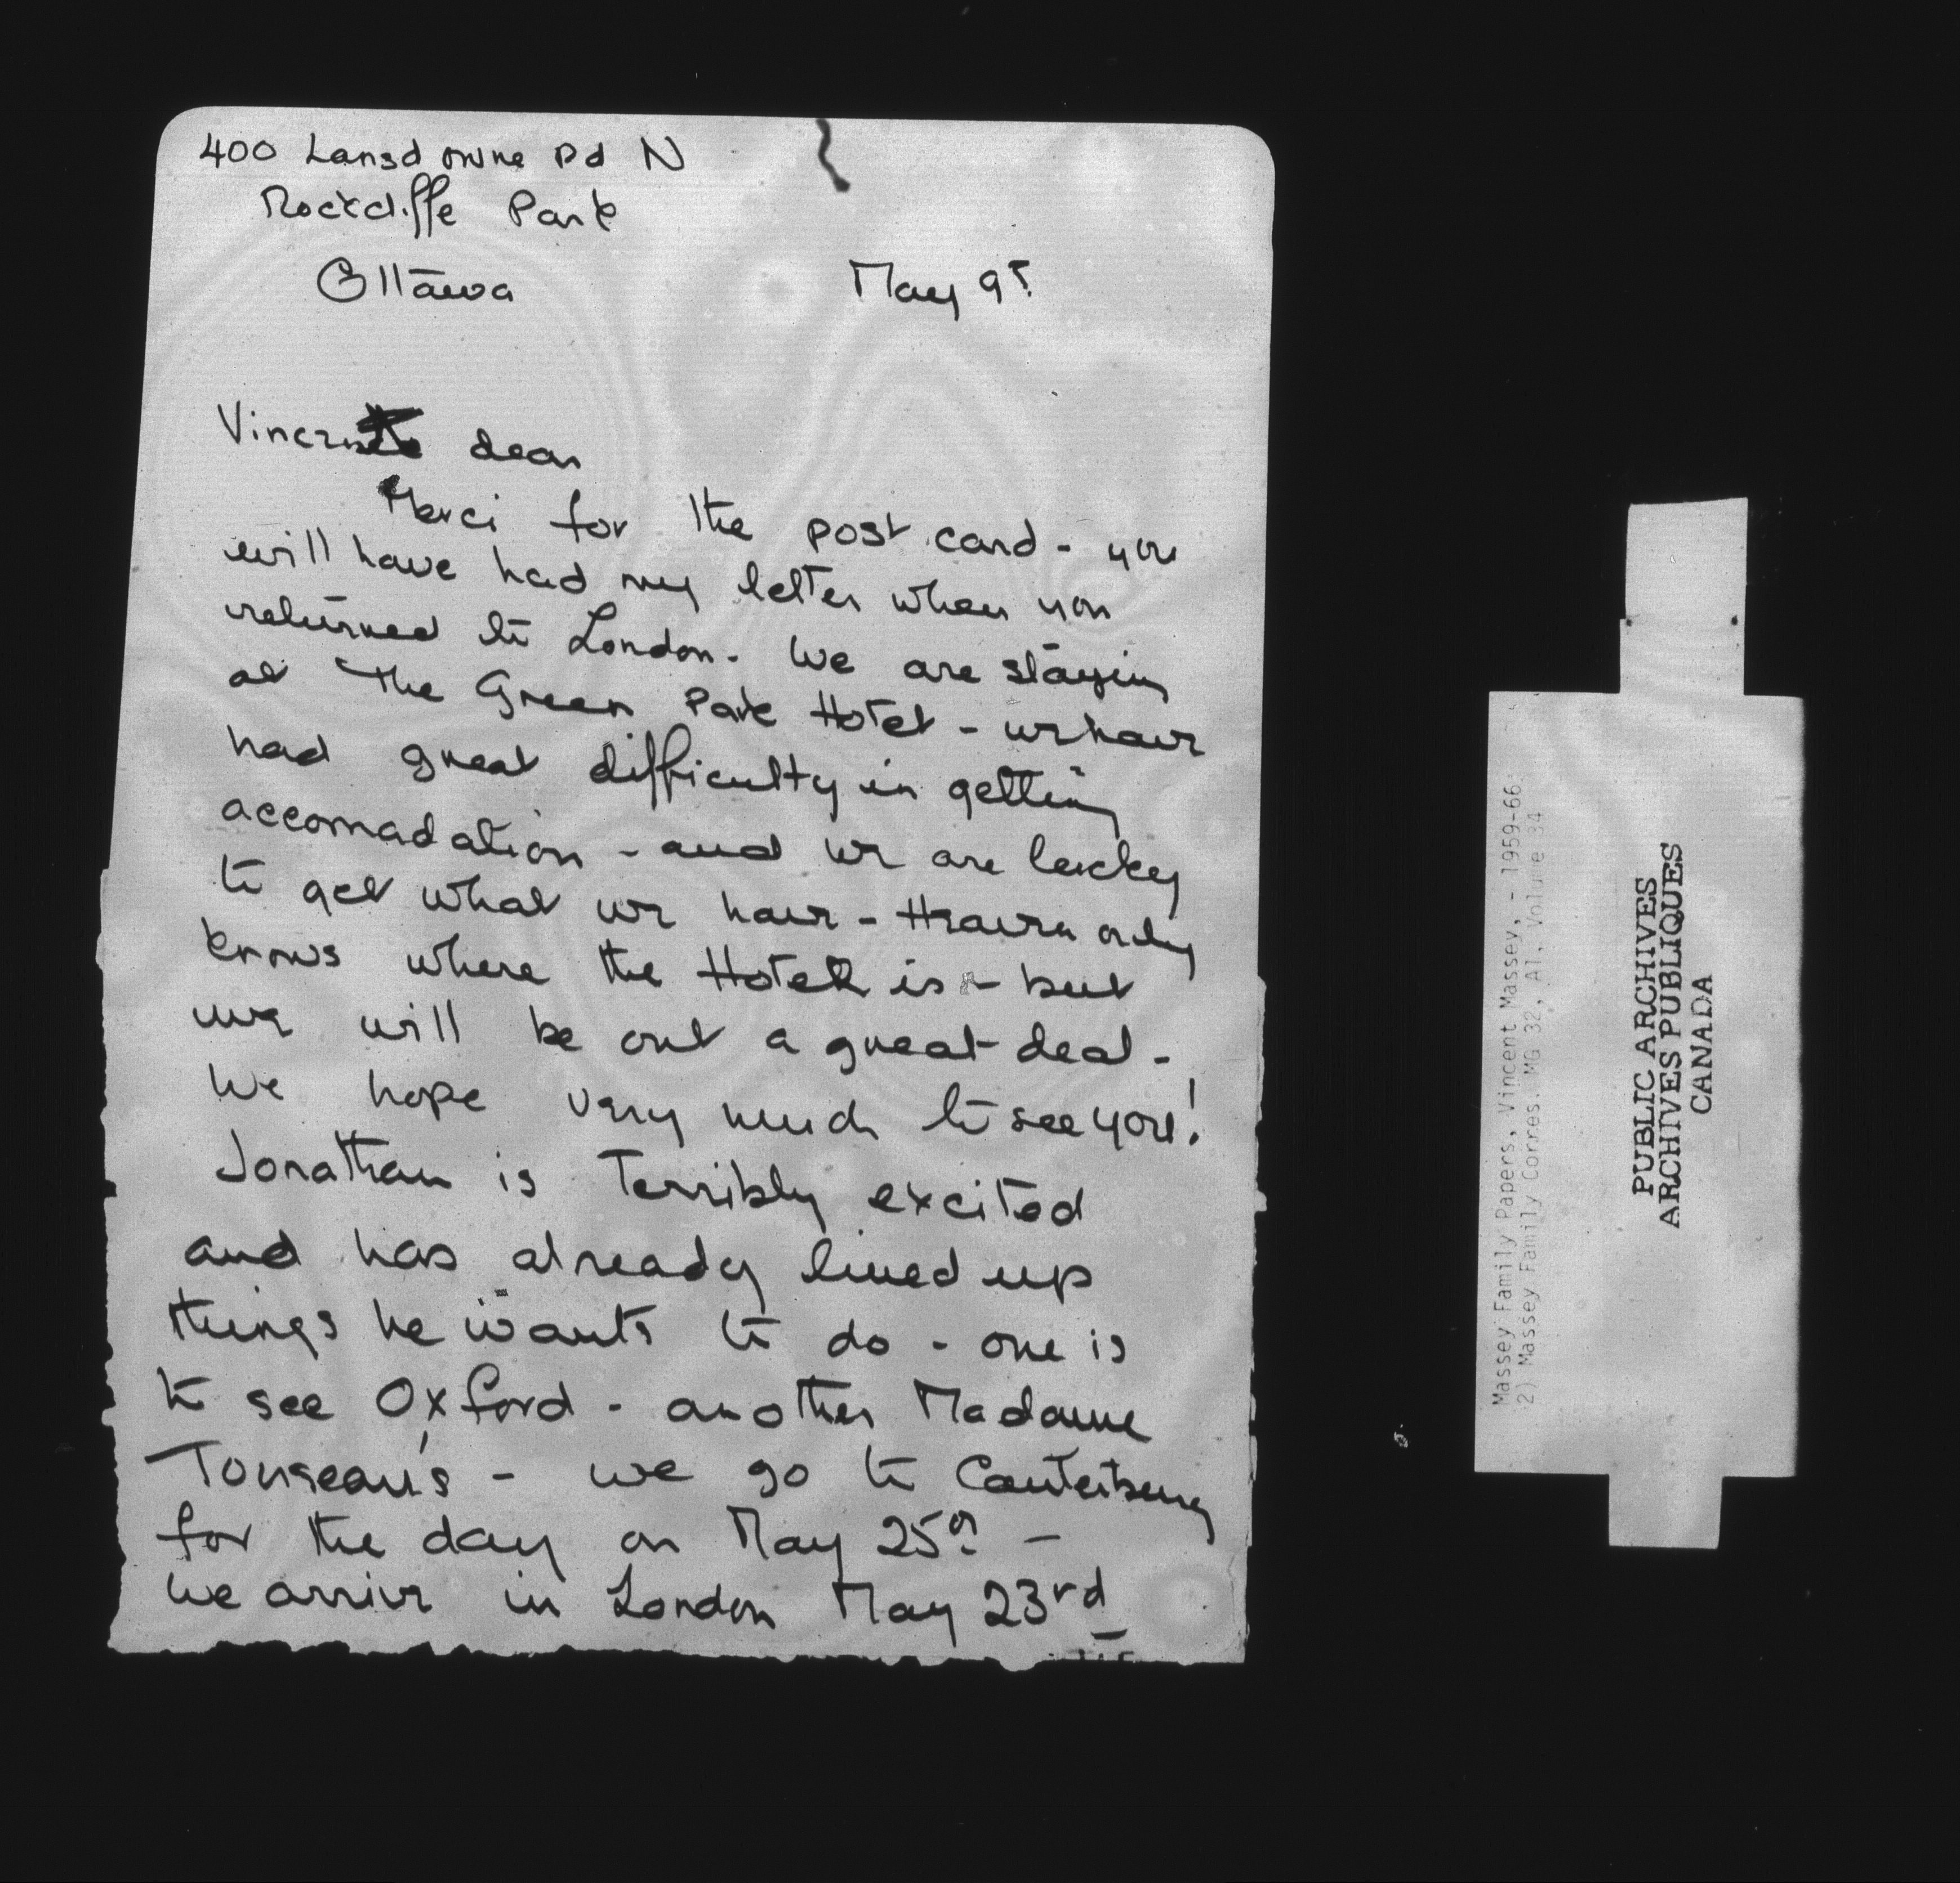 400 Lansdowne Rd N
Rockcliffe Park
Ottawa
May 9th
Vincent dear
Merci for the post card - you
will have had my letter when you
returned to London. We are staying
at The Green Park Hotel - we have
had great difficulty in getting
accomadation - and we are lucky
to get what we have - Heaven only
knows where the Hotel is - but
we will be out a great deal -
We hope very much to see you!
Jonathan is Terribly excited
and has already lined up
things he wants to do - one is
to see Oxford - another Madame
Touseau's - we go to Canterbury
for the day on May 25th -
We arrive in London May 23rd
Massey Family Papers, Vincent Massey, - 1959-66
2) Massey Family Corres. MG 32, A1, Volume 34
PUBLIC ARCHIVES
ARCHIVES PUBLIQUES
CANADA